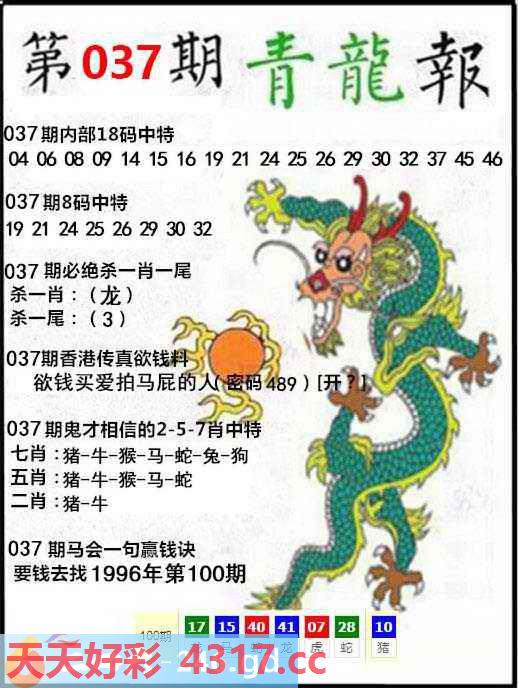 第037期青龍報
037期内部18码中特
04 06 08 09 14 15 16 19 21 24 25 26 29 30 32 37 45 46
037期8码中特
19 21 24 25 26 29 30 32
037期必绝杀一肖一尾
杀一肖：（龙）
杀一尾：（3）
037期香港传真欲钱料
欲钱买爱拍马屁的人(密码489)[开?]
037期鬼才相信的2-5-7肖中特
七肖：猪-牛-猴-马-蛇-兔-狗
五肖：猪-牛-猴-马-蛇
二肖：猪-牛
037期马会一句赢钱诀
要钱去找1996年第100期
100期 17 15 40 41 07 28 10
马 龙 虎 蛇 猪
天天好彩 4317.cc